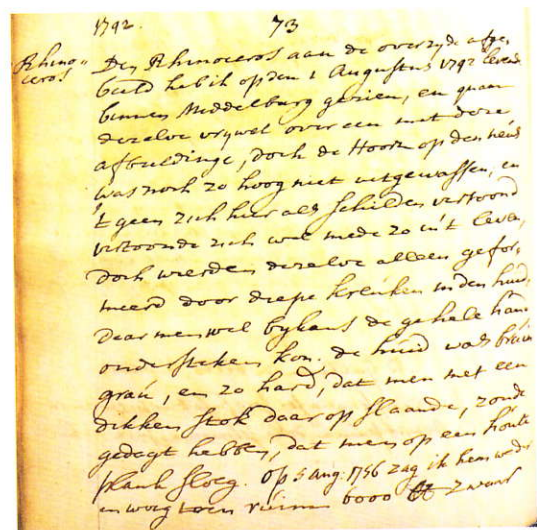 1792. 73
Rhino=
ceros
Den Rhinoceros aan de overzyde afge
beeld heb ik op den 1 Augustus 1742 levend
binnen Middelburg gezien, en quam
dezelve vrywel over een met deze
afbeeldinge, doch de Hoorn op den neus
was noch zo hoog niet uitgewassen, en
't geen zich hier als schilden vertoond
vertoonde zich wel mede zo in 't leven,
doch wierden dezelve alleen gefor,
meerd door diepe kreuken in den huid,
daar men wel bykans de gehele hand
ondersteken kon. de huid was bruin
grau, en zo hard, dat men met een
dikken stok daar op slaande, zoude
gedagt hebben, dat men op een houte
plank sloeg. op 5 aug: 1756 zag ik hem weder
en woog toen ruim 6000 ℔ zwaar